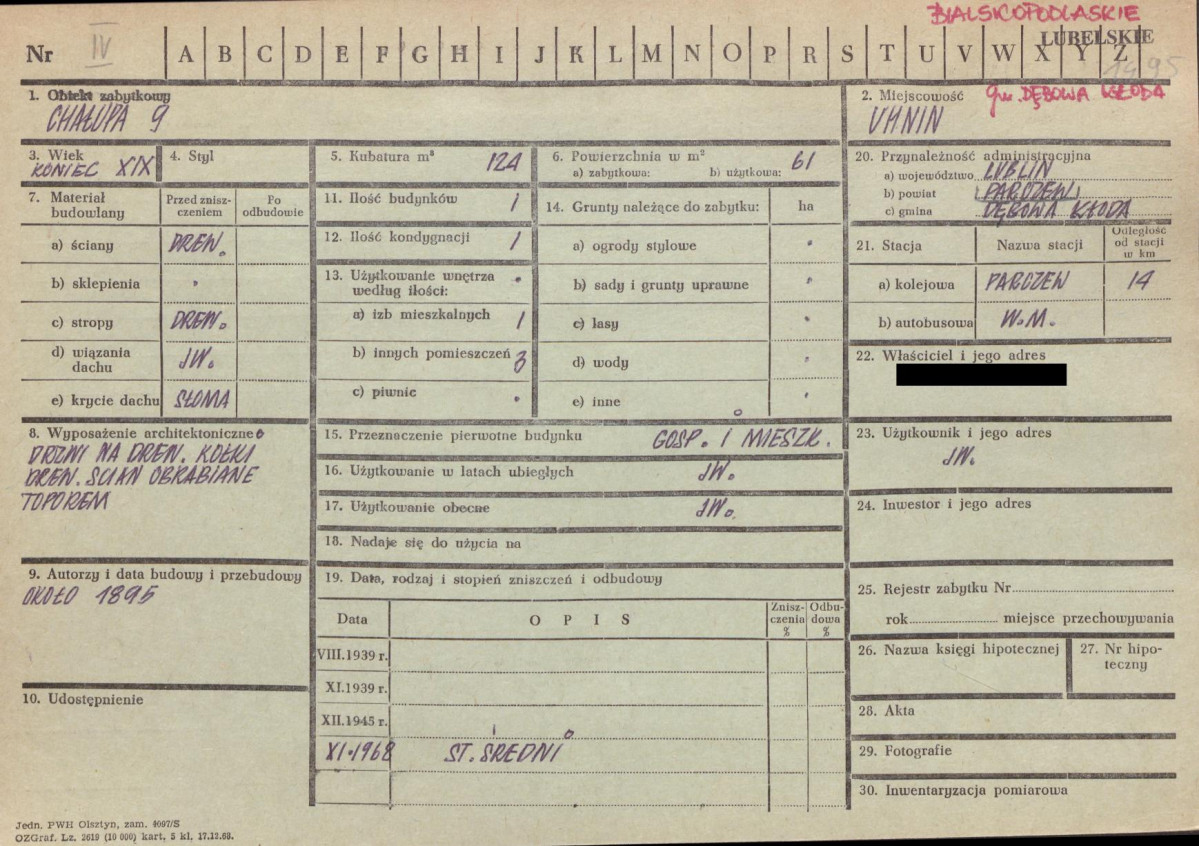 BIALSKOPODLASKIE
LUBELSKIE
Nr IV A B C D E F G H I J K L M N O P R S T U V W X Y Z
1495
1. Obiekt zabytkowy
CHAŁUPA 9
2. Miejscowość gm. DĘBOWA KŁODA
UHNIN
3. Wiek
KONIEC XIX
4. Styl
5. Kubatura m³ 124
6. Powierzchnia w m² 61
a) zabytkowa: b) użytkowa:
20. Przynależność administracyjna
a) województwo LUBLIN
b) powiat PARCZEW
c) gmina DĘBOWA KŁODA
7. Materiał budowlany
Przed znisz-
czeniem
Po
odbudowie
a) ściany DREW.
b) sklepienia "
c) stropy DREW.
d) wiązania
dachu JW.
e) krycie dachu SŁOMA
11. Ilość budynków 1
12. Ilość kondygnacji 1
13. Użytkowanie wnętrza
według ilości:
a) izb mieszkalnych 1
b) innych pomieszczeń 3
c) piwnic
14. Grunty należące do zabytku: ha
a) ogrody stylowe "
b) sady i grunty uprawne "
c) lasy "
d) wody "
e) inne "
21. Stacja
Nazwa stacji
Odległość
od stacji
w km
a) kolejowa PARCZEW 14
b) autobusowa W.M.
22. Właściciel i jego adres
8. Wyposażenie architektoniczne
DRZWI NA DREW. KOŁKI
DREW. ŚCIAN OBRABIANE
TOPOREM
15. Przeznaczenie pierwotne budynku GOSP. I MIESZK.
16. Użytkowanie w latach ubiegłych JW.
17. Użytkowanie obecne JW.
18. Nadaje się do użycia na
23. Użytkownik i jego adres
JW.
24. Inwestor i jego adres
9. Autorzy i data budowy i przebudowy
OKOŁO 1895
19. Data, rodzaj i stopień zniszczeń i odbudowy
Data
O P I S
Znisz-
czenia
%
Odbu-
dowa
%
VIII.1939 r.
XI.1939 r.
XII.1945 r.
XI.1968 ST. ŚREDNI
10. Udostępnienie
25. Rejestr zabytku Nr
rok miejsce przechowywania
26. Nazwa księgi hipotecznej
27. Nr hipo-
teczny
28. Akta
29. Fotografie
30. Inwentaryzacja pomiarowa
Jedn. PWH Olsztyn, zam. 4097/S
OZGraf. Lz. 2619 (10 000) kart. 5 kl. 17.12.68.